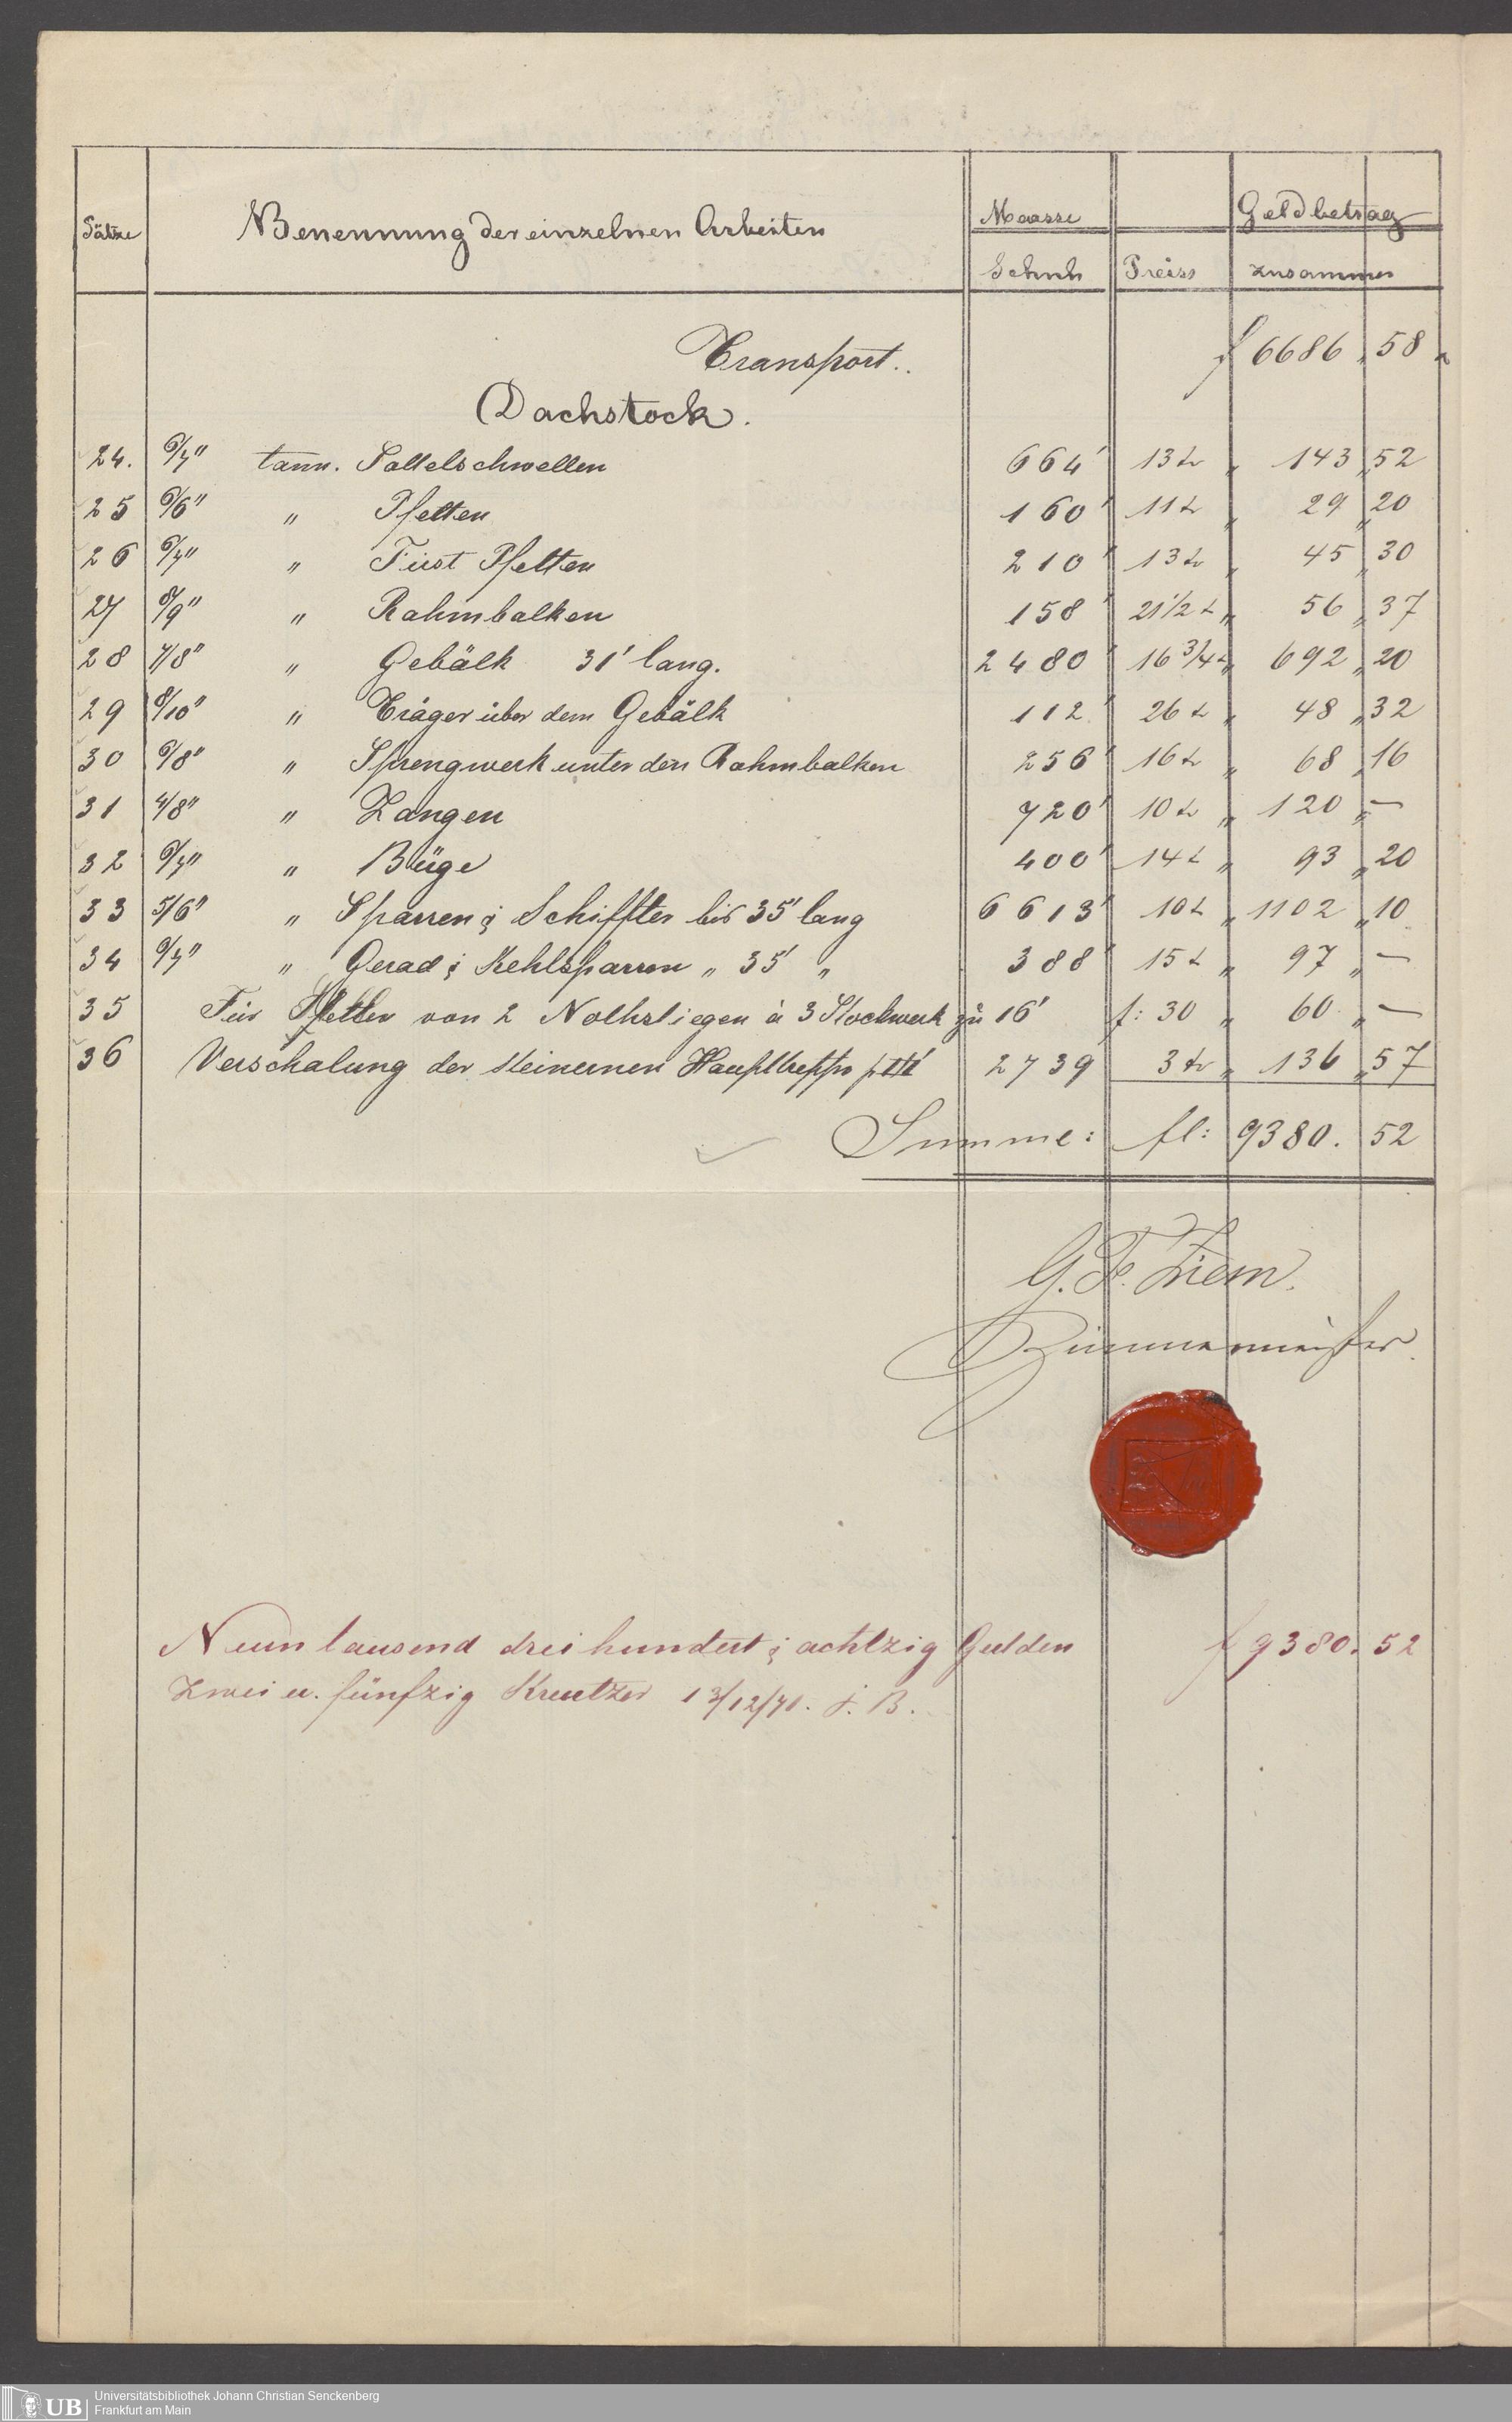 Sätze Benennung der einzelnen Arbeiten Maasse Geldbetrag
Schuh Preiss zusammen
Transport.. f 6686 „ 58
Dachstock.
24. 6/7" tann. Sattelschwellen 664' 13 kr „ 143 „ 52
25 6/6" " Pfetten 160' 11 kr „ 29 „ 20
26 6/7" " First Pfetten 210' 13 kr „ 45 „ 30
27 8/9" " Rahmbalken 158' 21 1/2 kr „ 56 „ 37
28 7/8" " Gebälk 31' lang. 2480' 16 3/4 kr „ 692 „ 20
29 8/10" " Träger über dem Gebälk 112' 26 kr „ 48 „ 32
30 6/8" " Sprengwerk unter den Rahmbalken 256' 16 kr „ 68 „ 16
31 4/8" " Zangen 720' 10 kr „ 120 „ —
32 6/7" " Büge 400' 14 kr „ 93 „ 20
33 5/6" " Sparren & Schiffter bis 35' lang 6613' 10 kr „ 1102 „ 10
34 6/7" " Gerad & Kehlsparren „ 35' „ 388' 15 kr „ 97 „ —
35 Für von 2 Nothstiegen à 3 Stockwerk zu 16' f: 30 „ 60 „ —
36 Verschalung der steinernen Haupttreppe 2739 3 kr „ 136 „ 57
Summe: fl: 9380. 52
G. F. Ziem.
Zimmermeister.
Neun tausend drei hundert & achtzig Gulden f 9380. 52
Zwei u. fünfzig Kreutzer 13/12/71. J. B.
UB
Universitätsbibliothek Johann Christian Senckenberg
Frankfurt am Main